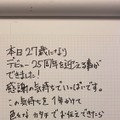 本日27歳になり
デビュー25周年を迎える事が
できました!
感謝の気持ちでいっぱいです。
この気持ちを1年かけて
色んなカタチでお伝えできたら